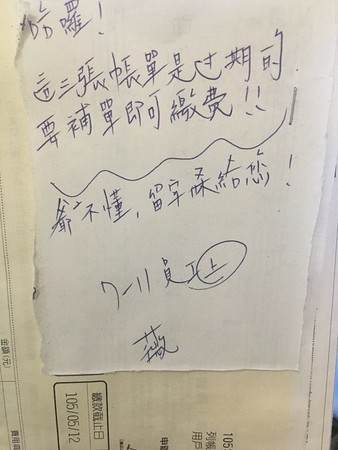 哈囉！
這三張帳單是过期的
要補單即可繳費！！
爺不懂，留字條給您！
7-11員工上
薇
金額(元)
繳款截止日
105/05/12
105
列帳
用戶
申
費用